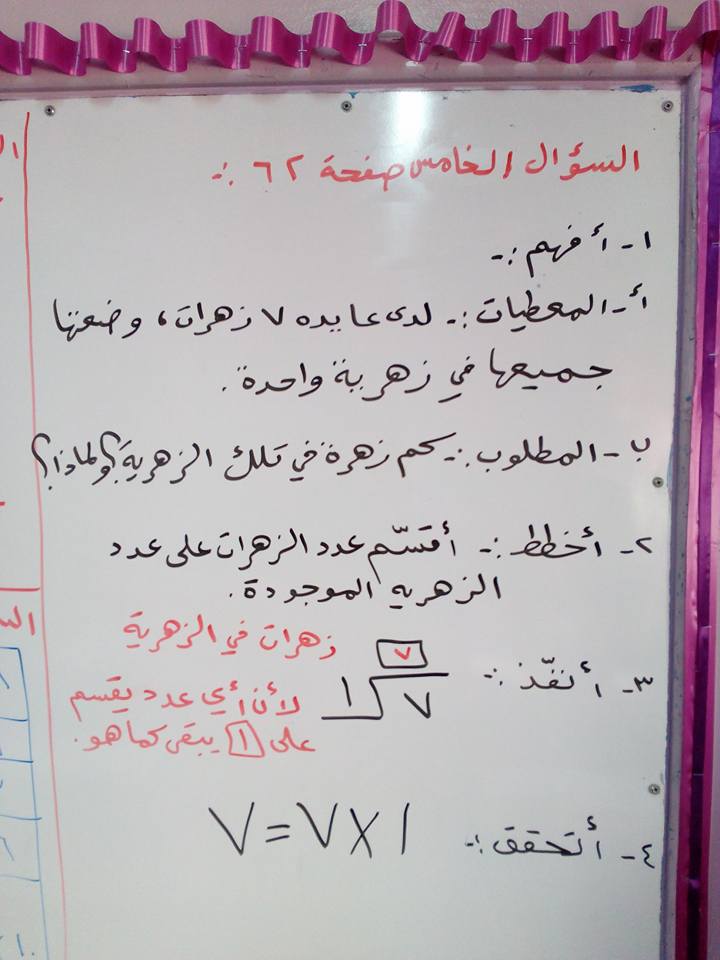 السؤال الخامس صفحة ٦٢ :-
١- أفهم :-
أ- المعطيات :- لدى عايده ٧ زهرات، وضعتها
جميعها في زهرية واحدة.
ب- المطلوب :- كم زهرة في تلك الزهرية؟ ولماذا؟
٢- أخطط :- أقسّم عدد الزهرات على عدد
الزهريه الموجودة.
٣- أنفّذ :-
٧ زهرات في الزهرية
١ ٧
لأن أي عدد يقسم
على ١ يبقى كما هو.
٤- أتحقق :- ١ × ٧ = ٧